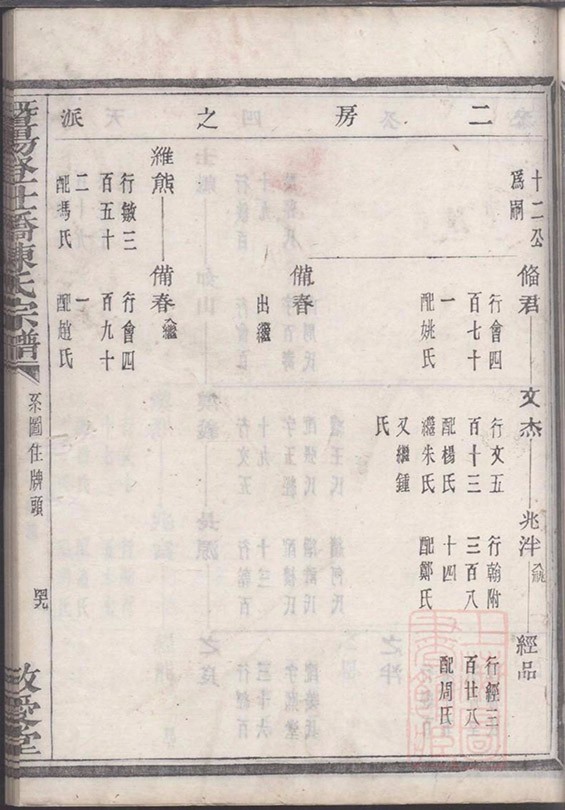 二房之派
十二公
為嗣
脩君
行會四
百七十
一
配姚氏
文杰
行文五
百十三
配楊氏
繼朱氏
又繼鍾
氏
兆泮
入繼
行翰附
三百八
十四
配鄭氏
經品
行經三
百廿八
配周氏
備春
出繼
維熊
行徽三
百五十
二
配馮氏
備春
入繼
行會四
百九十
一
配趙氏
暨陽登仕橋陳氏宗譜
系圖住牌頭
敬愛堂